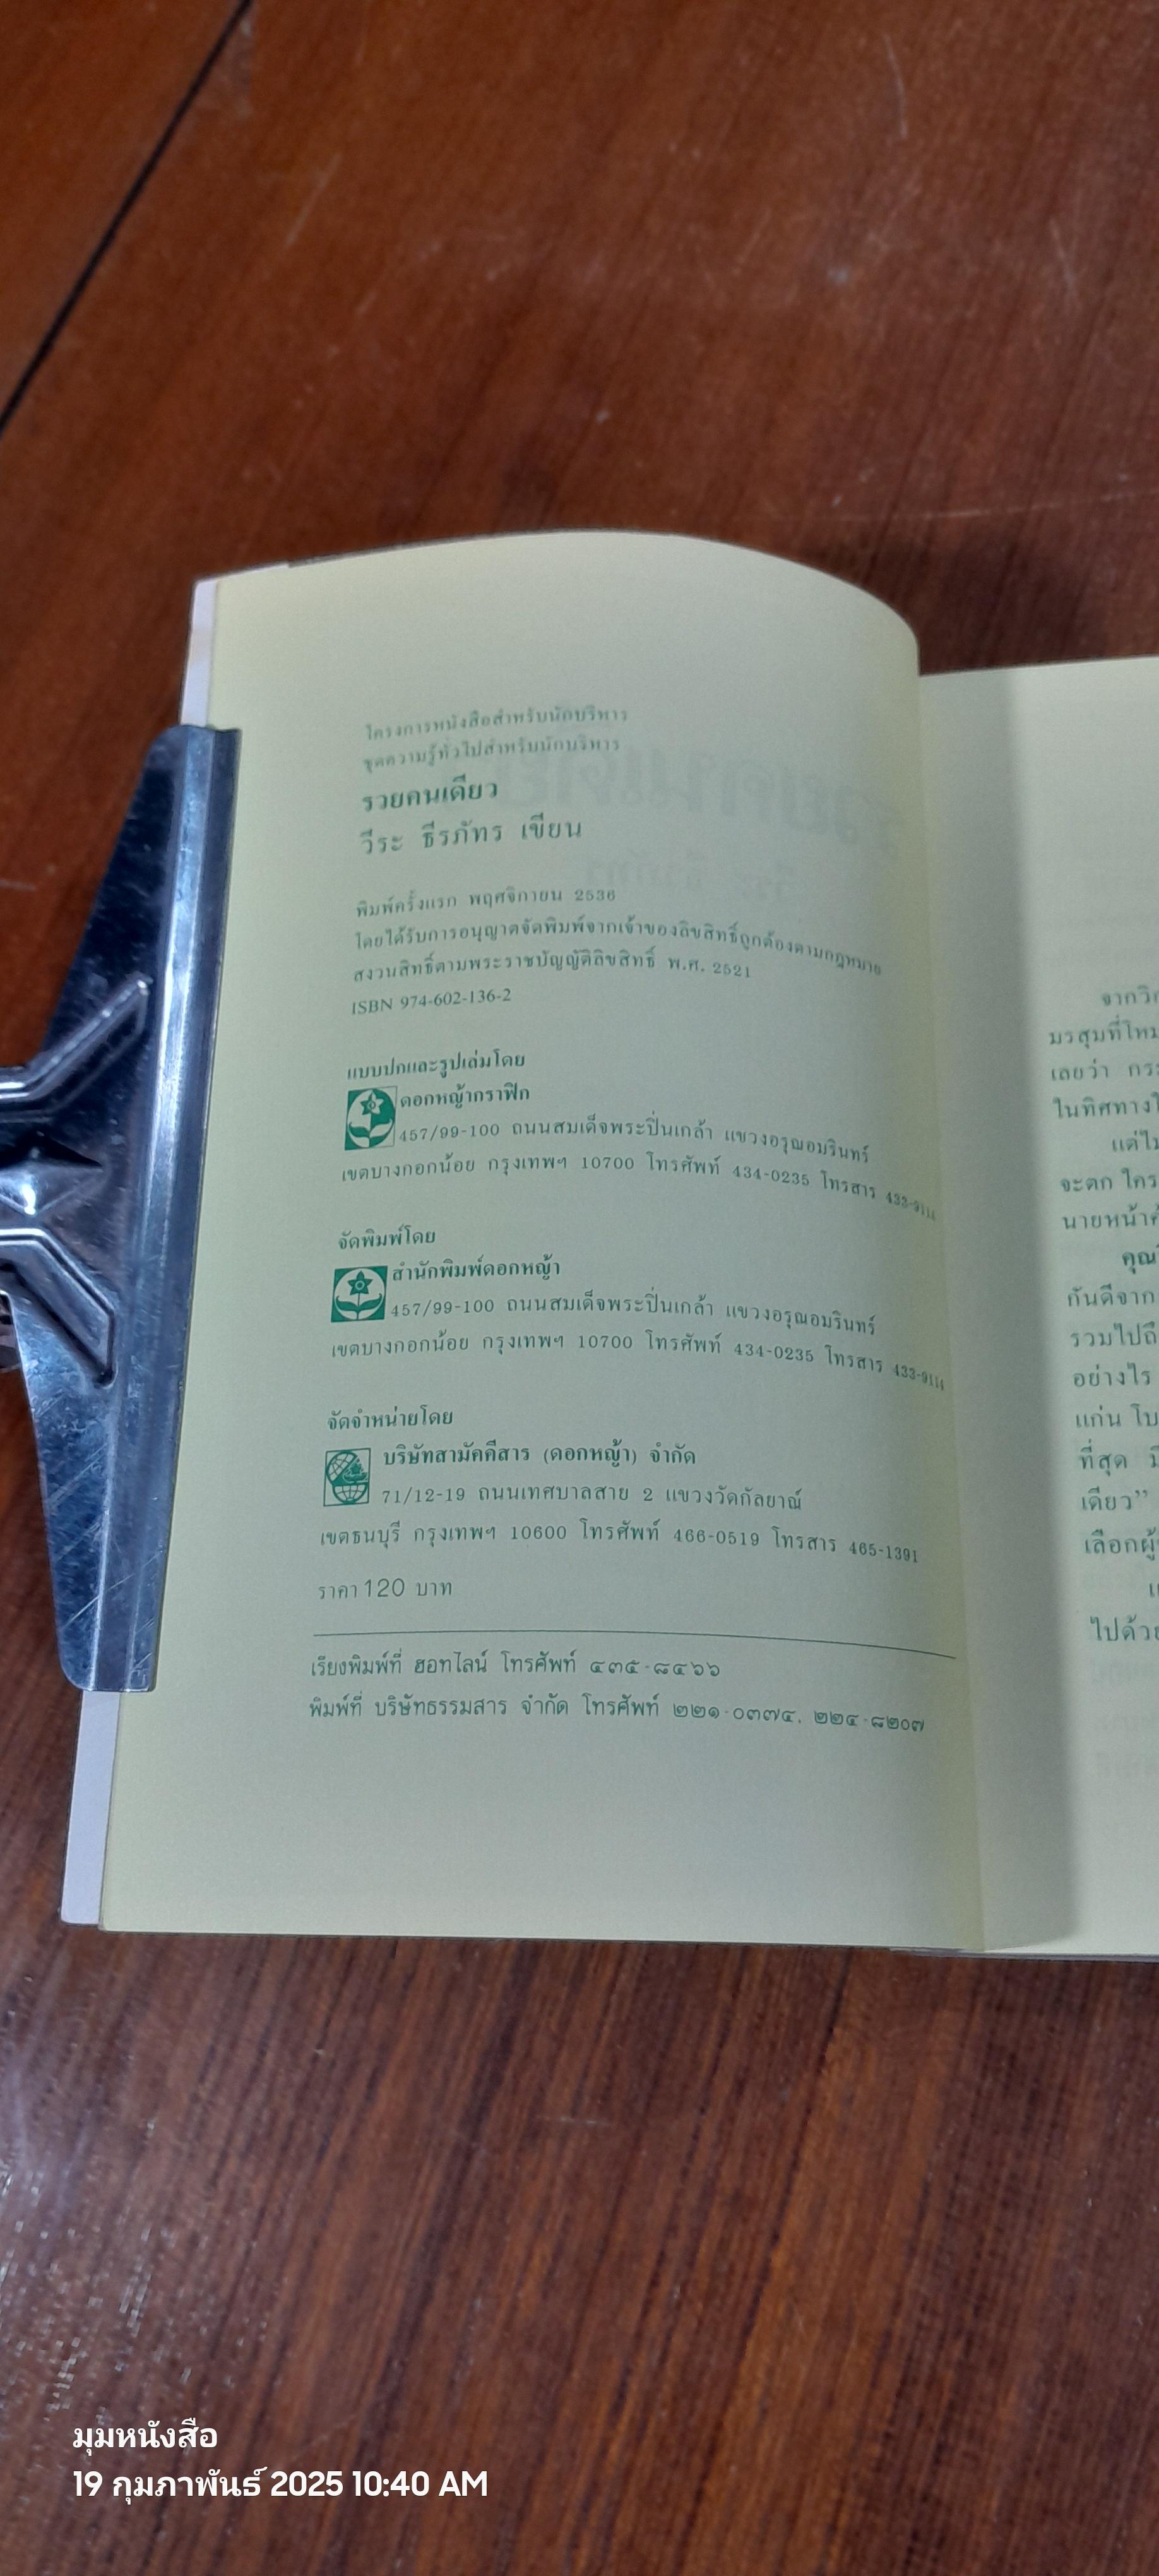 โครงการหนังสือสำหรับนักบริหาร
ชุดความรู้ทั่วไปสำหรับนักบริหาร
รวยคนเดียว
วีระ ธีรภัทร เขียน
พิมพ์ครั้งแรก พฤศจิกายน 2536
โดยได้รับการอนุญาตจัดพิมพ์จากเจ้าของลิขสิทธิ์ถูกต้องตามกฎหมาย
สงวนสิทธิ์ตามพระราชบัญญัติลิขสิทธิ์ พ.ศ. 2521
ISBN 974-602-136-2
แบบปกและรูปเล่มโดย
ดอกหญ้ากราฟิก
457/99-100 ถนนสมเด็จพระปิ่นเกล้า แขวงอรุณอมรินทร์
เขตบางกอกน้อย กรุงเทพฯ 10700 โทรศัพท์ 434-0235 โทรสาร 433-9114
จัดพิมพ์โดย
สำนักพิมพ์ดอกหญ้า
457/99-100 ถนนสมเด็จพระปิ่นเกล้า แขวงอรุณอมรินทร์
เขตบางกอกน้อย กรุงเทพฯ 10700 โทรศัพท์ 434-0235 โทรสาร 433-9114
จัดจำหน่ายโดย
บริษัทสามัคคีสาร (ดอกหญ้า) จำกัด
71/12-19 ถนนเทศบาลสาย 2 แขวงวัดกัลยาณ์
เขตธนบุรี กรุงเทพฯ 10600 โทรศัพท์ 466-0519 โทรสาร 465-1391
ราคา 120 บาท
เรียงพิมพ์ที่ ฮอทไลน์ โทรศัพท์ ๔๓๕-๘๔๖๖
พิมพ์ที่ บริษัทธรรมสาร จำกัด โทรศัพท์ ๒๒๑-๐๓๗๔, ๒๒๔-๘๒๐๗
จากวิก
มรสุมที่โหม
เลยว่า กระ
ในทิศทางใ
แต่ไม
จะตก ใคร
นายหน้าค้
คุณ
กันดีจาก
รวมไปถึ
อย่างไร
แก่น โบ
ที่สุด มี
เดียว”
เลือกผู้
ไปด้วย
มุมหนังสือ
19 กุมภาพันธ์ 2025 10:40 AM